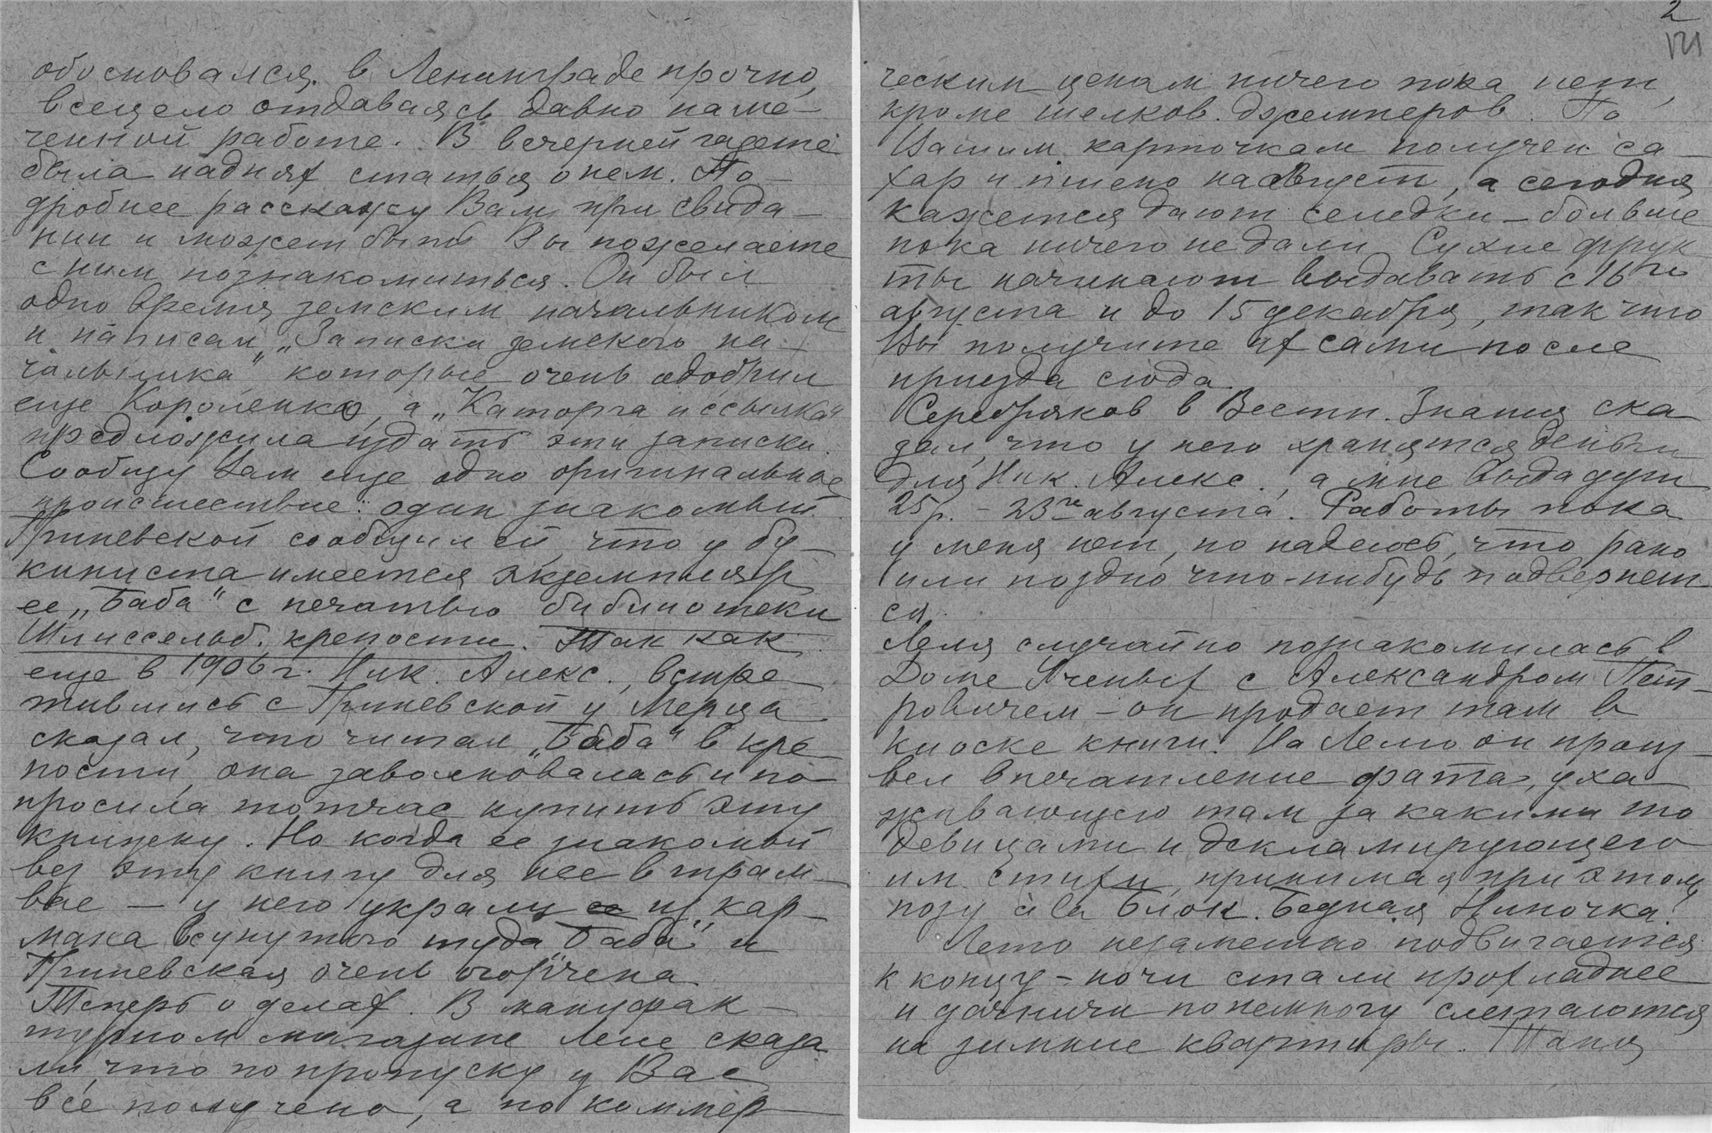 обосновался в Ленинграде прочно,
всецело отдаваясь давно наме-
ченной работе. В вечерней газете
была на днях статья о нем. По-
дробнее расскажу Вам при свида-
нии и может быть Вы пожелаете
с ним познакомиться. Он был
одно время земским начальником
и написал „Записки земского на-
чальника" которые очень одобрил
еще Короленко, а „Каторга и ссылка"
предложила издать эти записки.
Сообщу Вам еще одно оригинальное
происшествие: один знакомый
Гриневской сообщил ей, что у бу-
киниста имеется экземпляр
ее „Баба" с печатью библиотеки
Шлиссельб. крепости. Так как
еще в 1906 г. Ник. Алекс., встре-
тившись с Гриневской у Мерца
сказал, что читал „Баба" в кре-
пости, она заволновалась и по-
просила тотчас купить эту
книжку. Но когда ее знакомый
вез эту книгу для нее в трам-
вае – у него украли из кар-
мана всунутого туда „Баба" и
Гриневская очень огорчена.
Теперь о делах. В мануфак-
турном магазине Леле сказа
ли, что по пропуску у Вас
все получено, а по коммер-
2
ческим ценам ничего пока нет,
кроме шелков. джемперов. По
Вашим карточкам получен са-
хар и пшено на август, а сегодня
кажется дают селедки – больше
пока ничего не дали. Сухие фрук
ты начинают выдавать с 16го
августа и до 15 декабря, так что
Вы получите их сами после
приезда сюда.
Серебряков в Вестн. Знания ска
зал, что у него хранятся деньги
для Ник. Алекс., а мне выдадут
25 р. – 23го августа. Работы пока
у меня нет, но надеюсь, что рано
или поздно что-нибудь подвернет-
ся.
Леля случайно познакомилась в
Доме Ученых с Александром Пет-
ровичем – он продает там в
киоске книги. На Лелю он произ-
вел впечатление фата, уха
живающего там за какими то
девицами и декламирующего
им стихи, принимая при этом
позу à la Блок. Бедная Ниночка!
Лето незаметно подвигается
к концу – ночи стали прохладнее
и дачники понемногу слетаются
на зимние квартиры. Таня